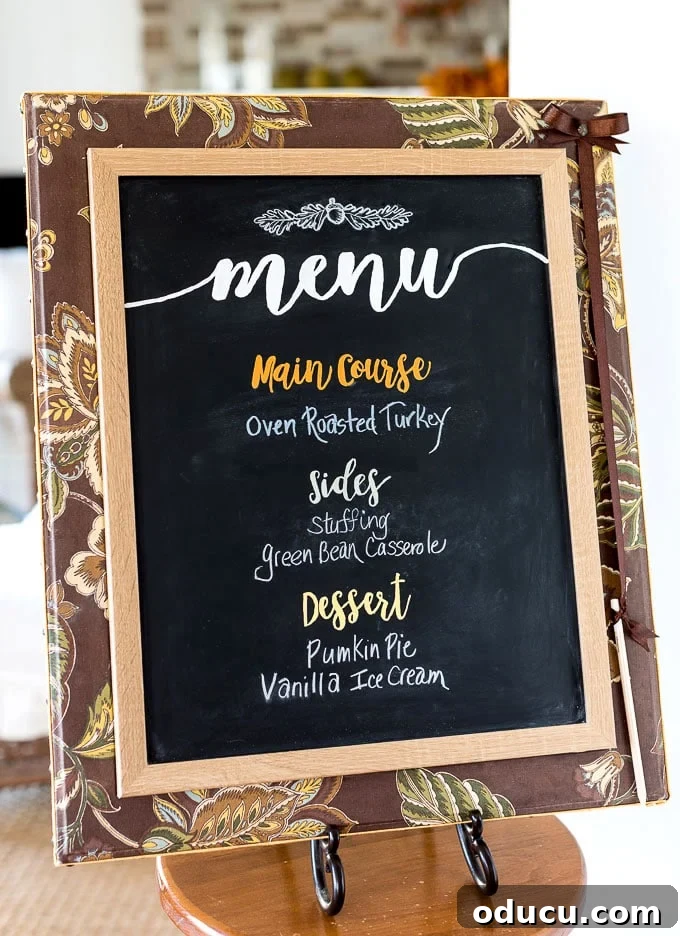 menu
Main Course
Oven Roasted Turkey
Sides
Stuffing
Green Bean Casserole
Dessert
Pumkin Pie
Vanilla Ice Cream
oducu.com